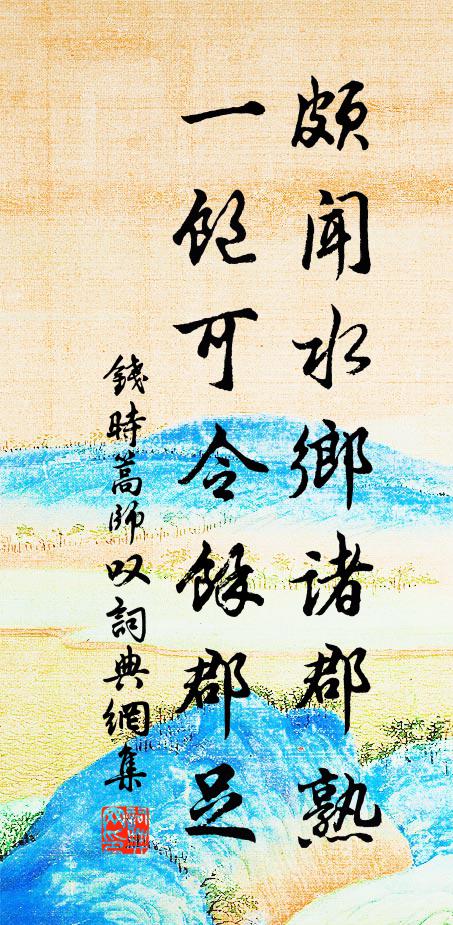 頗聞水鄉諸郡熟
一飽可令餘郡足
錢時篙師叹詞典網集